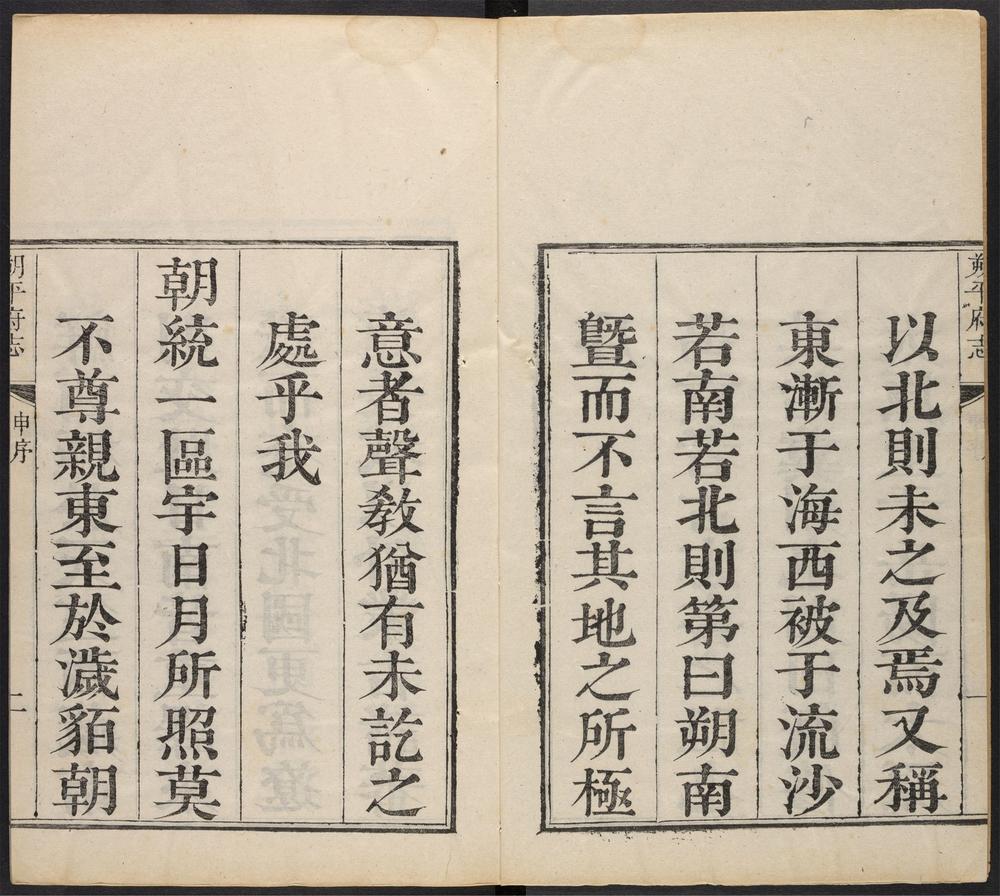 朔平府志
以北則未之及焉又稱
東漸于海西被于流沙
若南若北則第曰朔南
曁而不言其地之所極
意者聲教猶有未訖之
處乎我
朝統一區宇日月所照莫
不尊親東至於濊貊朝
朔平府志 申序 二